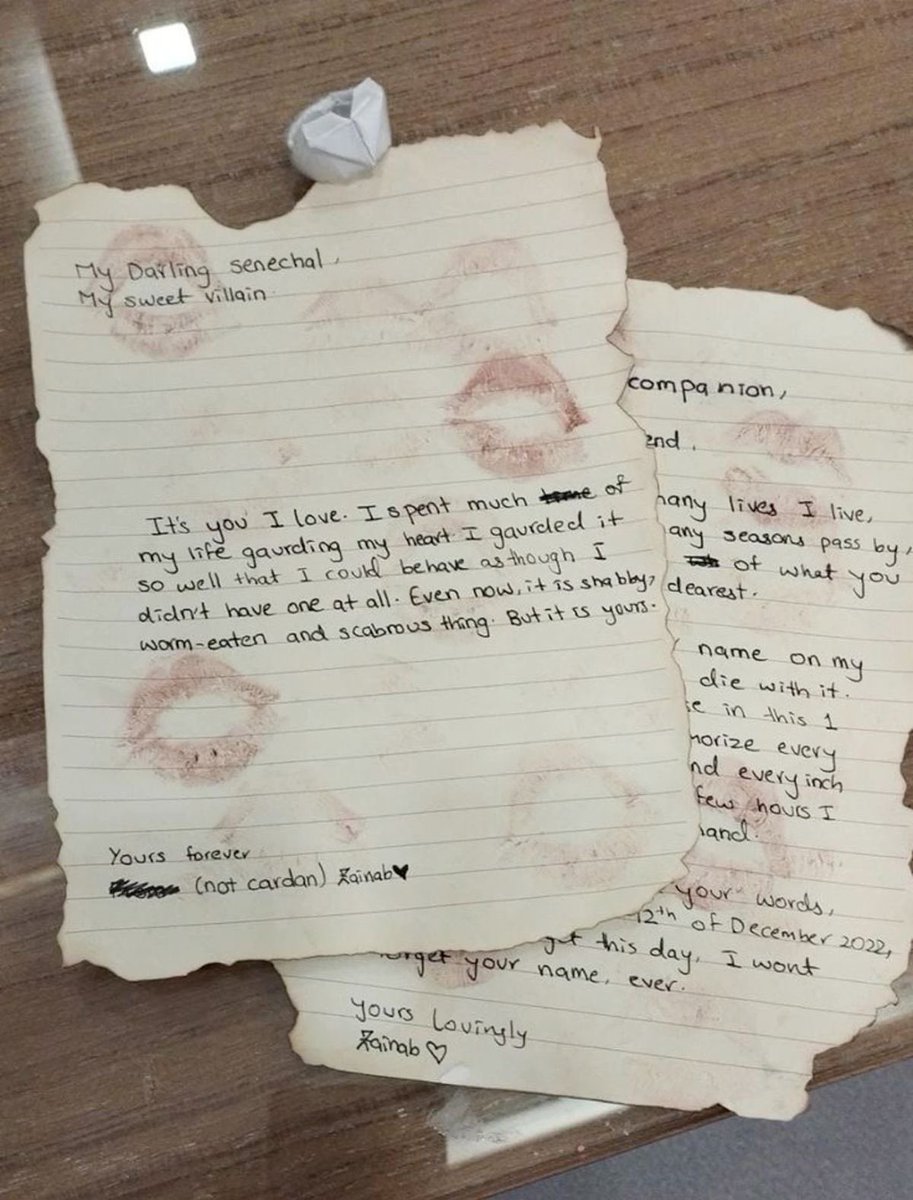 My Darling senechal,
My sweet villain
It's you I love. I spent much of
my life gaurding my heart. I gaurded it
so well that I could behave as though I
didn't have one at all. Even now, it is shabby,
worm-eaten and scabrous thing. But it is yours.
Yours forever
(not cardan) Zainab
companion,
end.
any lives I live,
any seasons pass by,
of what you
dearest.
name on my
die with it.
in this 1
morize every
nd every inch
few hours I
hand.
your words,
12th of December 2022,
get this day, I wont
rget your name, ever.
yours lovingly
Zainab